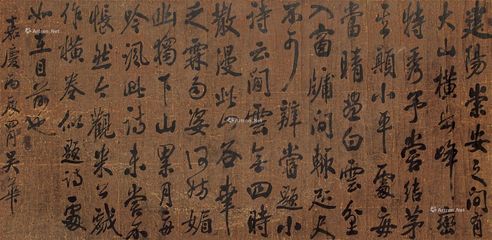 建陽崇安之間有
大山橫出峰巒
特秀予嘗結茅
其顛小平處每
當晴晝白雲坌
入窗牖間輒咫尺
不可辨嘗題小
詩云閒雲無四時
散漫此山谷幸
乏霖雨姿何妨媚
幽獨下山累月每
吟諷此詩未嘗不
悵然今觀米公戲
作橫卷似題詩處
如在目前也
嘉慶丙辰四月吳